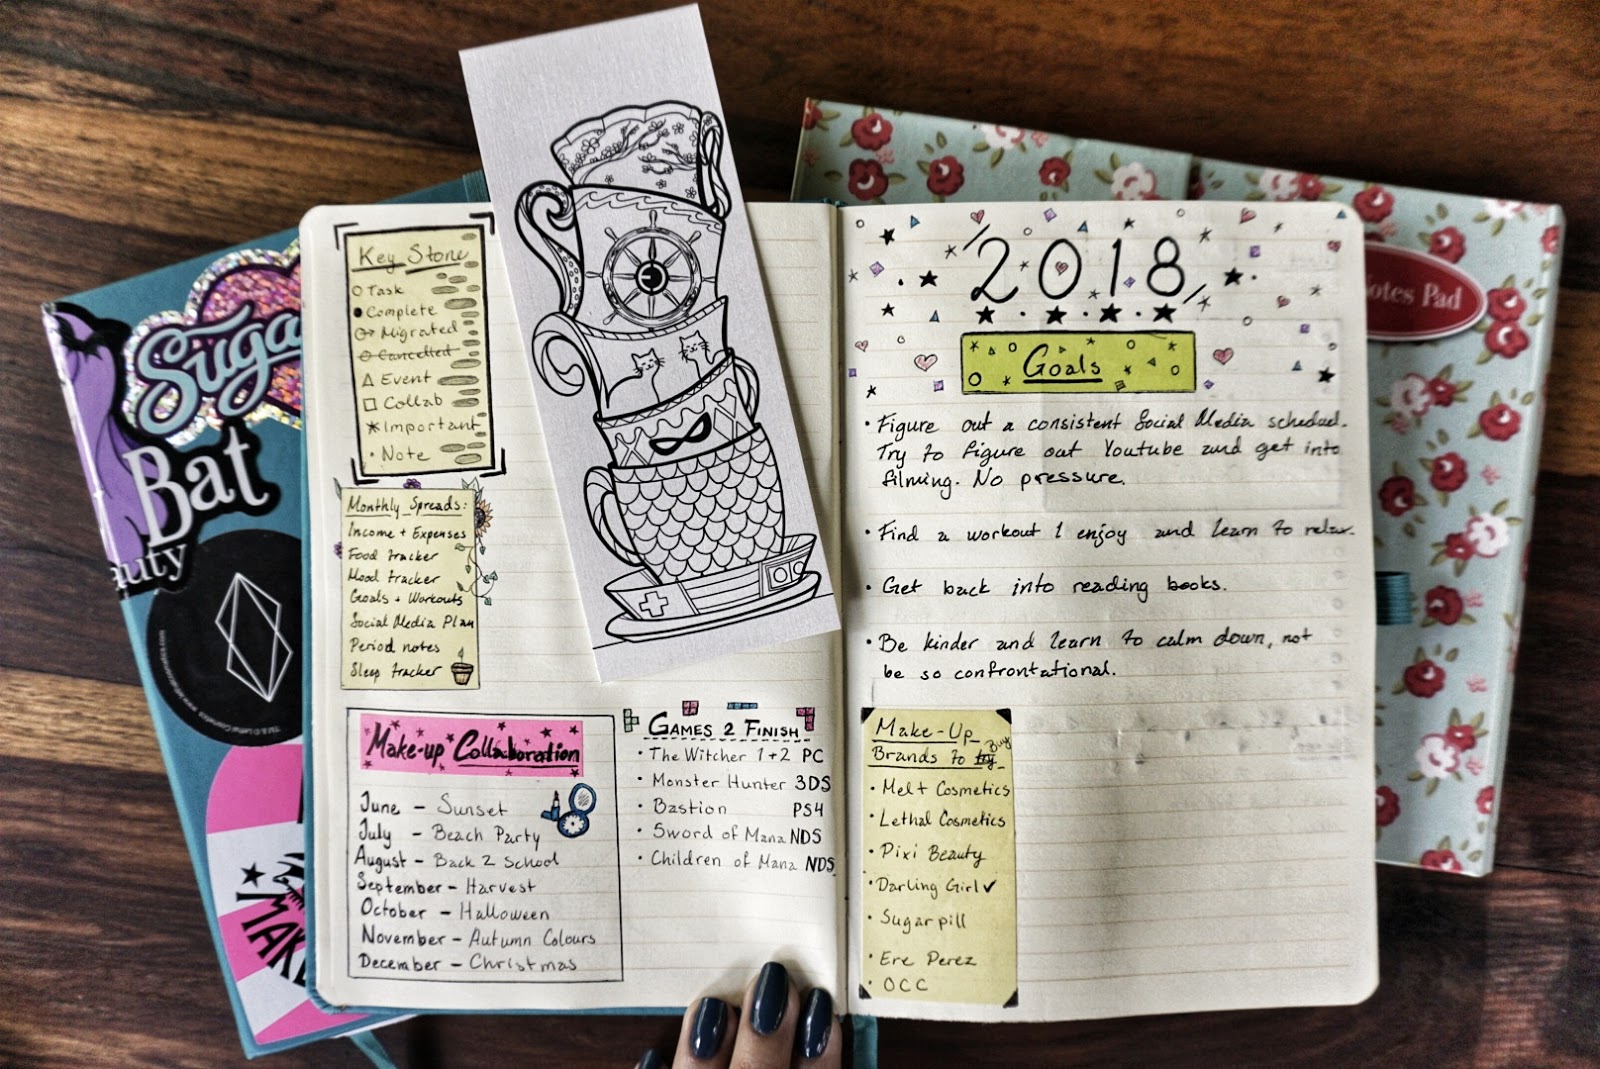 Key Stone
Task
Complete
Migrated
Cancelled
Event
Collab
Important
Note
Monthly Spreads:
Income + Expenses
Food tracker
Mood tracker
Goals + Workouts
Social Media Plan
Period notes
Sleep tracker
Make-up Collaboration
June - Sunset
July - Beach Party
August - Back 2 School
September - Harvest
October - Halloween
November - Autumn Colours
December - Christmas
GAMES 2 FINISH
• The Witcher 1+2 PC
• Monster Hunter 3DS
• Bastion PS4
• Sword of Mana NDS
• Children of Mana NDS
2018
Goals
• Figure out a consistent Social Media scheduel.
Try to figure out Youtube and get into
filming. No pressure.
• Find a workout I enjoy and learn to relax.
• Get back into reading books.
• Be kinder and learn to calm down, not
be so confrontational.
Make-Up
Buy
Brands to try
• Melt Cosmetics
• Lethal Cosmetics
• Pixi Beauty
• Darling Girl ✓
• Sugarpill
• Ere Perez
• OCC
Suga
Bat
auty
MAKE
otes Pad